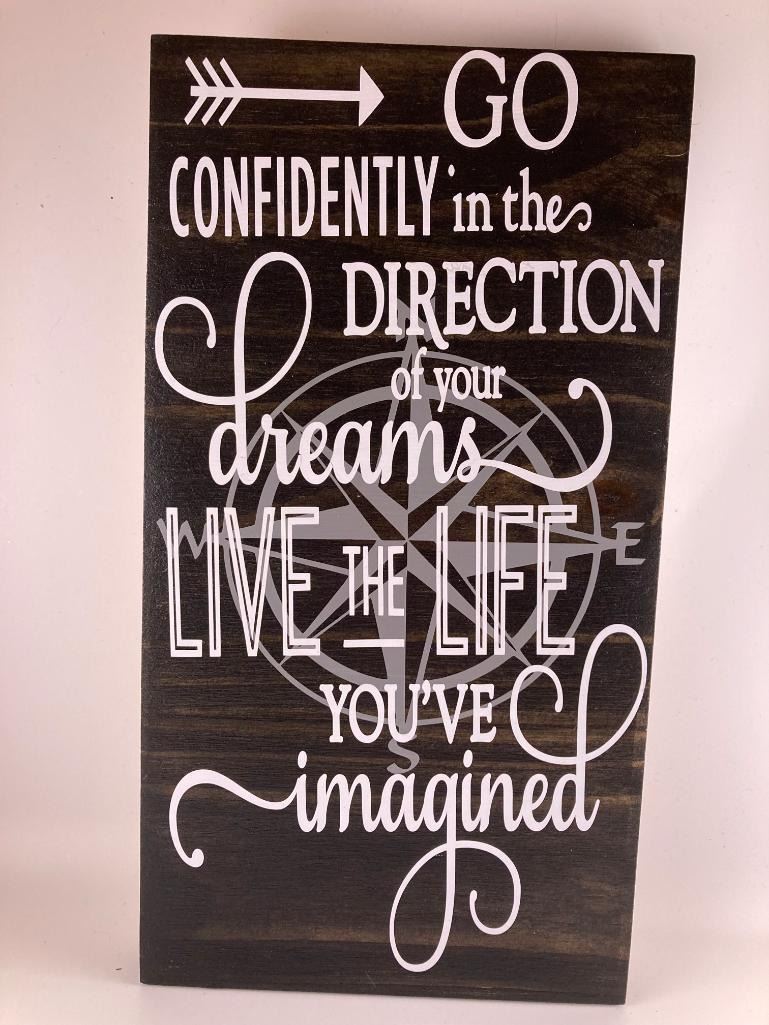 GO
CONFIDENTLY in the
DIRECTION
of your
dreams
W LIVE THE LIFE E
YOU'VE
S
imagined